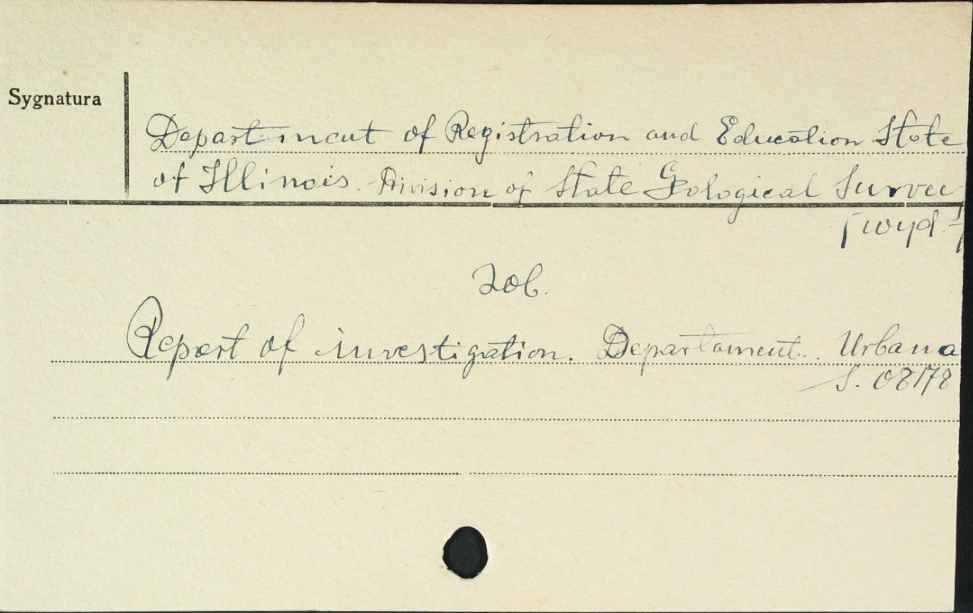 Sygnatura
Department of Registration and Education State
of Illinois. Division of State Gological Survee
[wyd.]
Zob.
Report of investigation. Departament.. Urbana
S. 08178